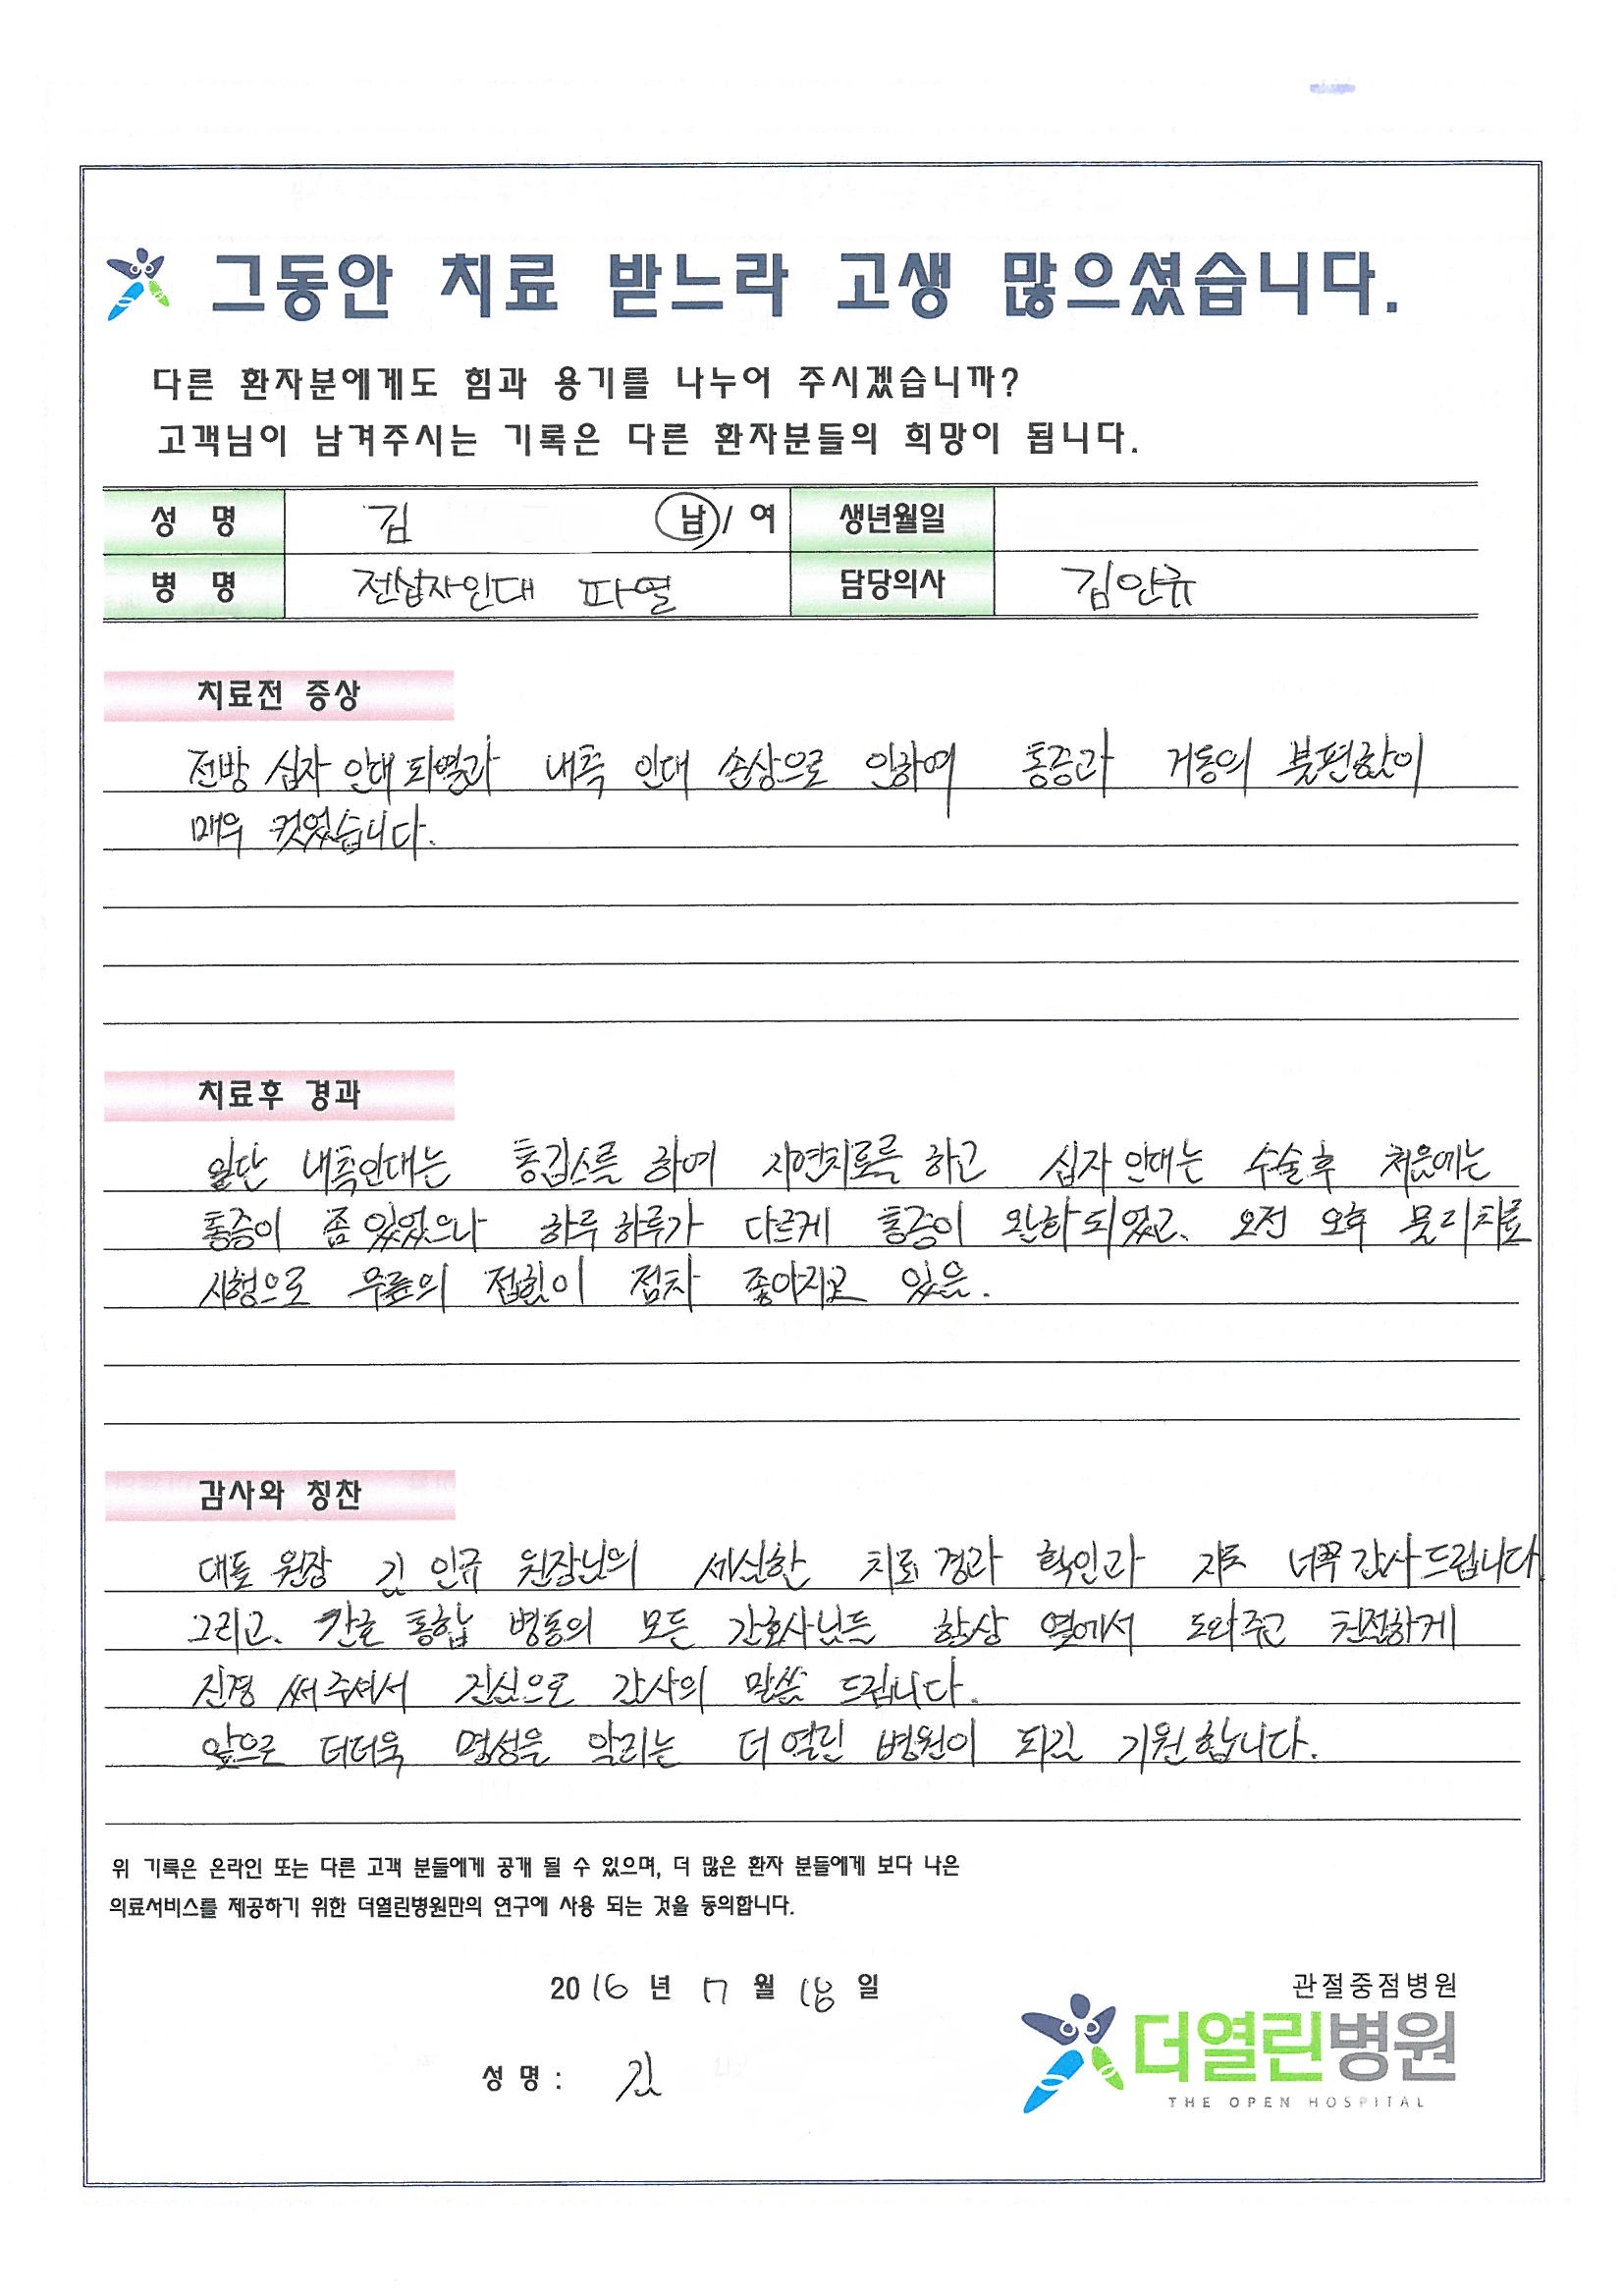 그동안 치료 받느라 고생 많으셨습니다.
다른 환자분에게도 힘과 용기를 나누어 주시겠습니까?
고객님이 남겨주시는 기록은 다른 환자분들의 희망이 됩니다.
성 명 김 남 / 여 생년월일
병 명 전십자인대 파열 담당의사 김인규
치료전 증상
전방 십자 인대 파열과 내측 인대 손상으로 인하여 통증과 거동의 불편함이
매우 컷었습니다.
치료후 경과
일단 내측인대는 통깁스를 하여 자연치료를 하고 십자 인대는 수술후 처음에는
통증이 좀 있었으나 하루 하루가 다르게 통증이 완화 되었고. 오전 오후 물리치료
시행으로 무릎의 접힘이 점차 좋아지고 있음.
감사와 칭찬
대표 원장 김 인규 원장님의 세심한 치료 경과 확인과 너무 감사드립니다
그리고. 간호 통합 병동의 모든 간호사님들 항상 옆에서 도와주고 친절하게
신경 써 주셔서 진심으로 감사의 말씀 드립니다.
앞으로 더더욱 명성을 알리는 더 열린 병원이 되길 기원합니다.
위 기록은 온라인 또는 다른 고객 분들에게 공개 될 수 있으며, 더 많은 환자 분들에게 보다 나은
의료서비스를 제공하기 위한 더열린병원만의 연구에 사용 되는 것을 동의합니다.
2016 년 7 월 18 일
성 명 : 김
관절중점병원
더열린병원
THE OPEN HOSPITAL